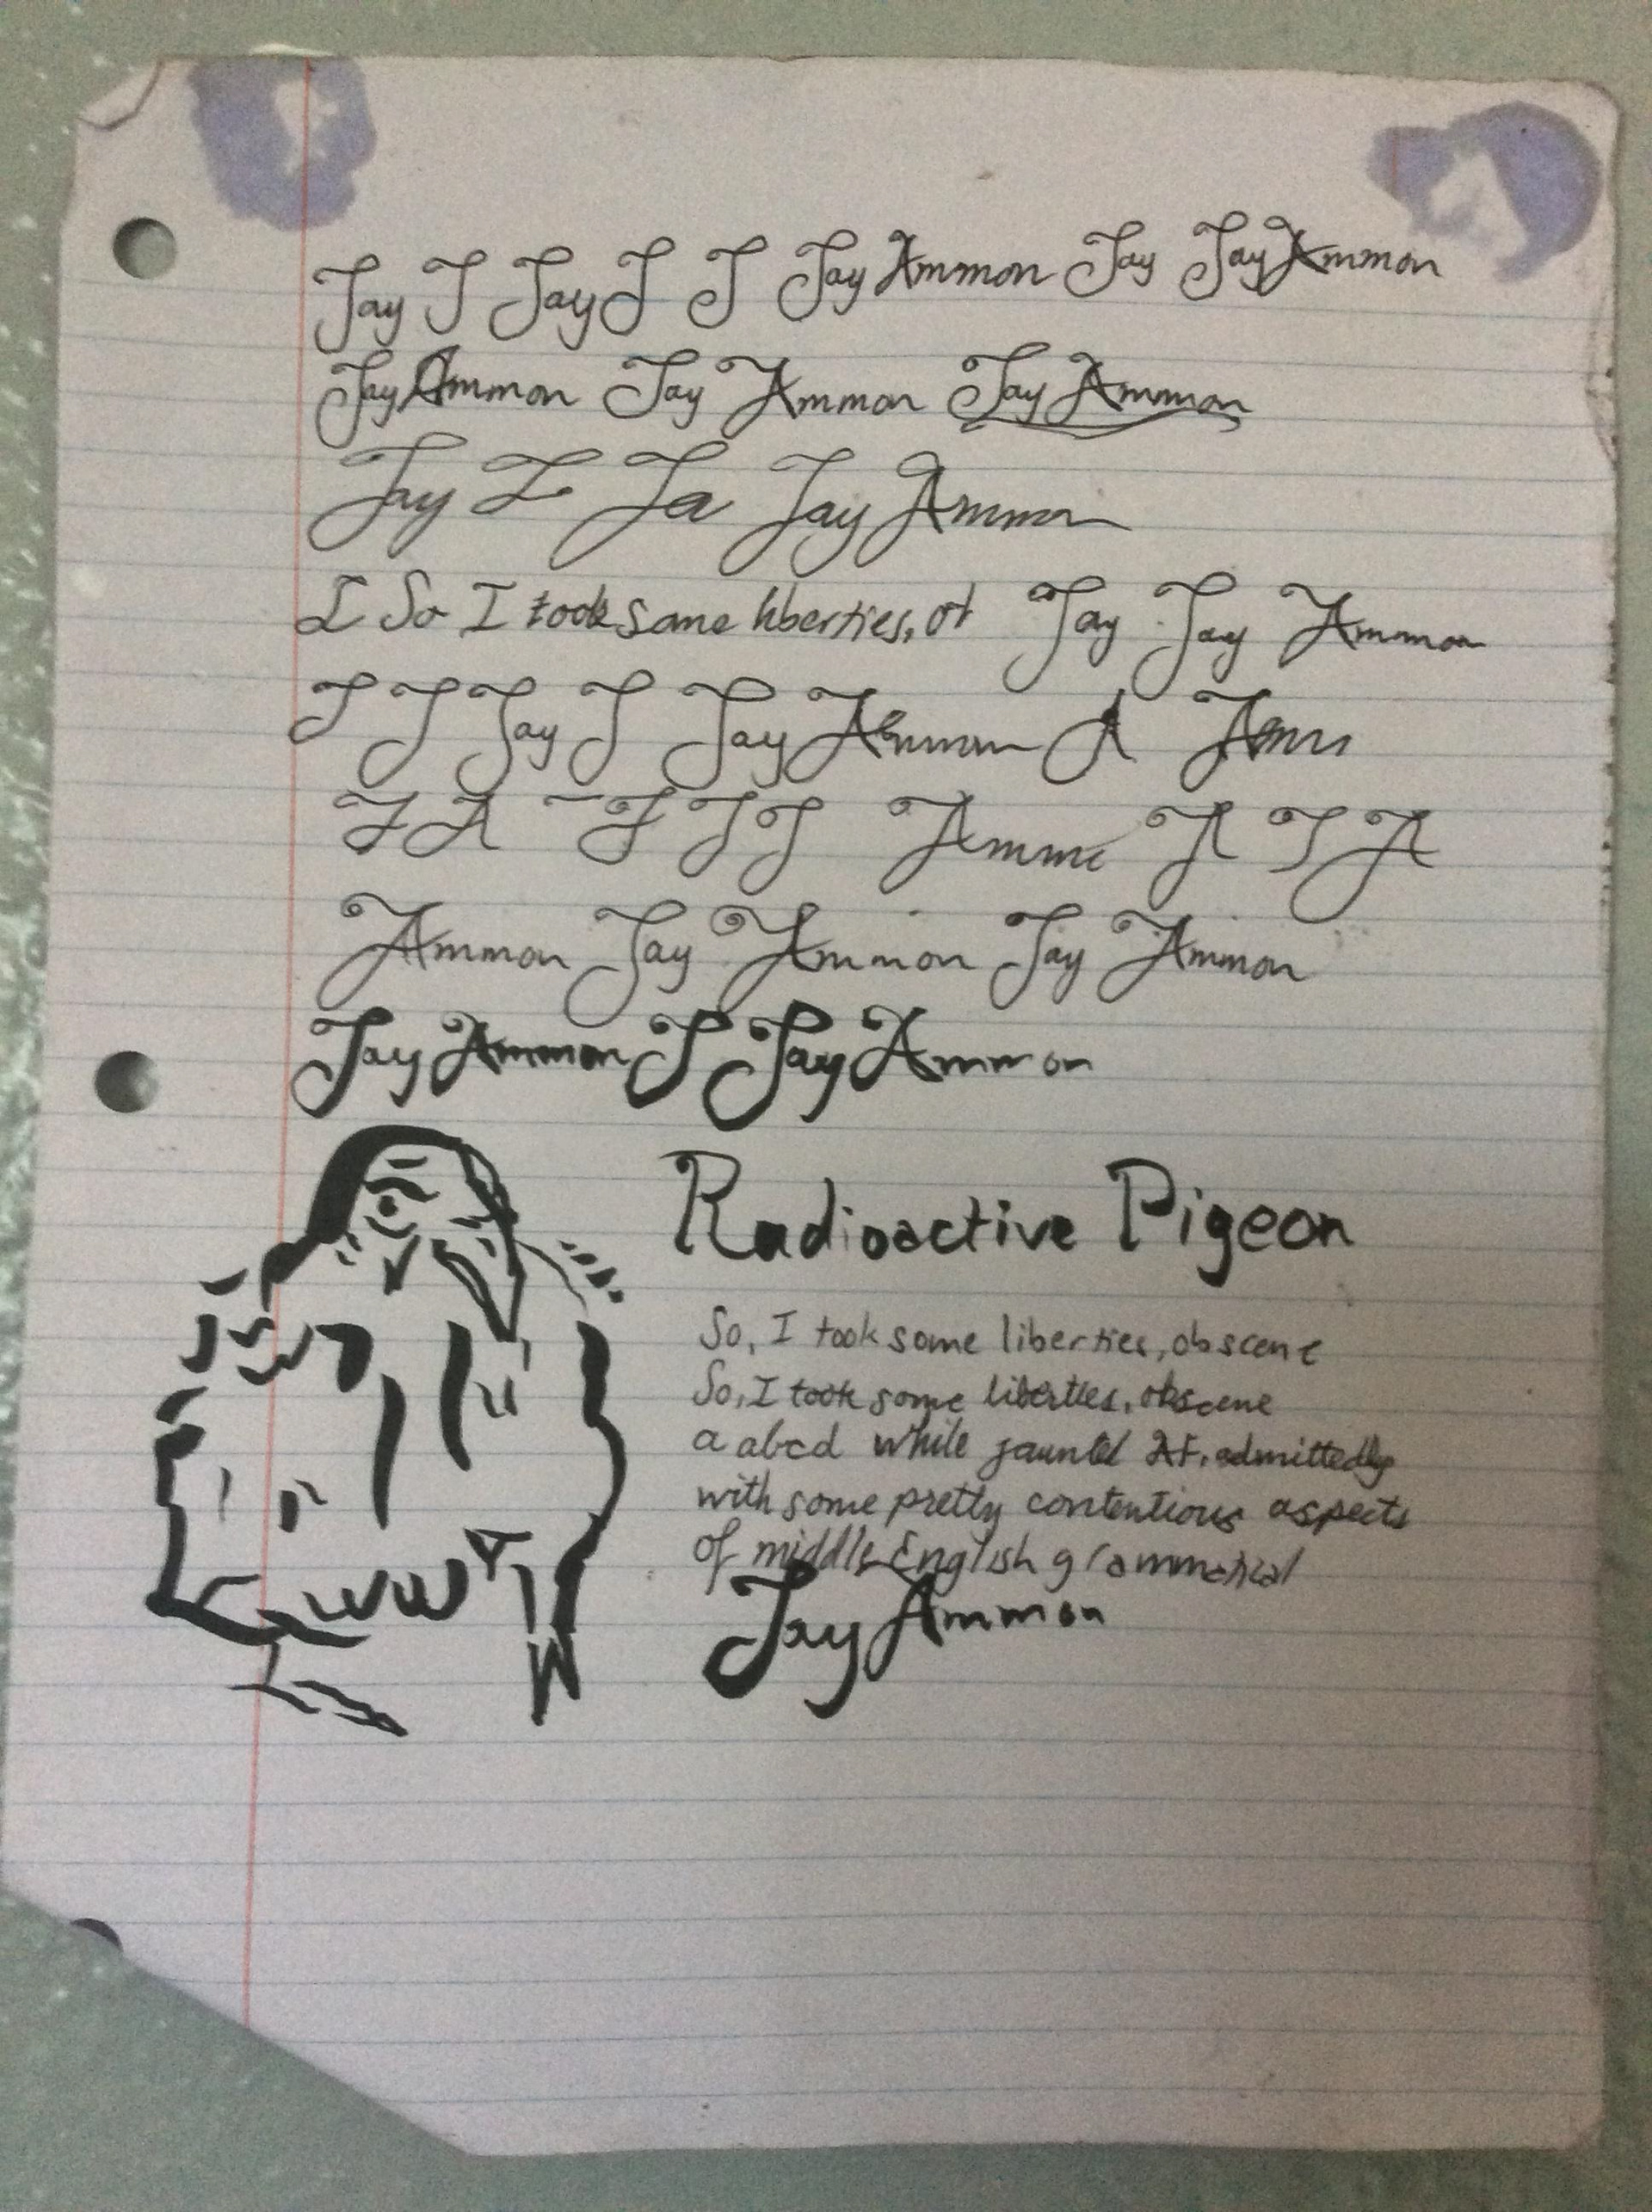 Jay J Jay J J Jay Ammon Jay Jay Ammon
Jay Ammon Jay Ammon Jay Ammon
Jay J Ja Jay Ammon
I So I took some liberties, ot Jay Jay Ammon
J J Jay J Jay Ammon A
J A J J J A J A
Ammon Jay Ammon Jay Ammon
Jay Ammon J Jay Ammon
Radioactive Pigeon
So, I took some liberties, obscene
So, I took some liberties, obscene
a abcd while admittedly
with some pretty contentious aspects
of middle English grammatical
Jay Ammon